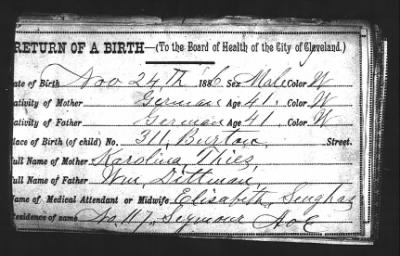 RETURN OF A BIRTH—(To the Board of Health of the City of Cleveland.)
ate of Birth Nov 24th 1886 Sex Male Color W
ativity of Mother German Age 41. Color W
ativity of Father German Age 41. Color W
lace of Birth (of child) No. 311 Burton Street.
ull Name of Mother Karolina Thiez,
ull Name of Father Wm, Dittman,
ame of Medical Attendant or Midwife Elisabeth,
esidence of same No. 117, Seymour Ave